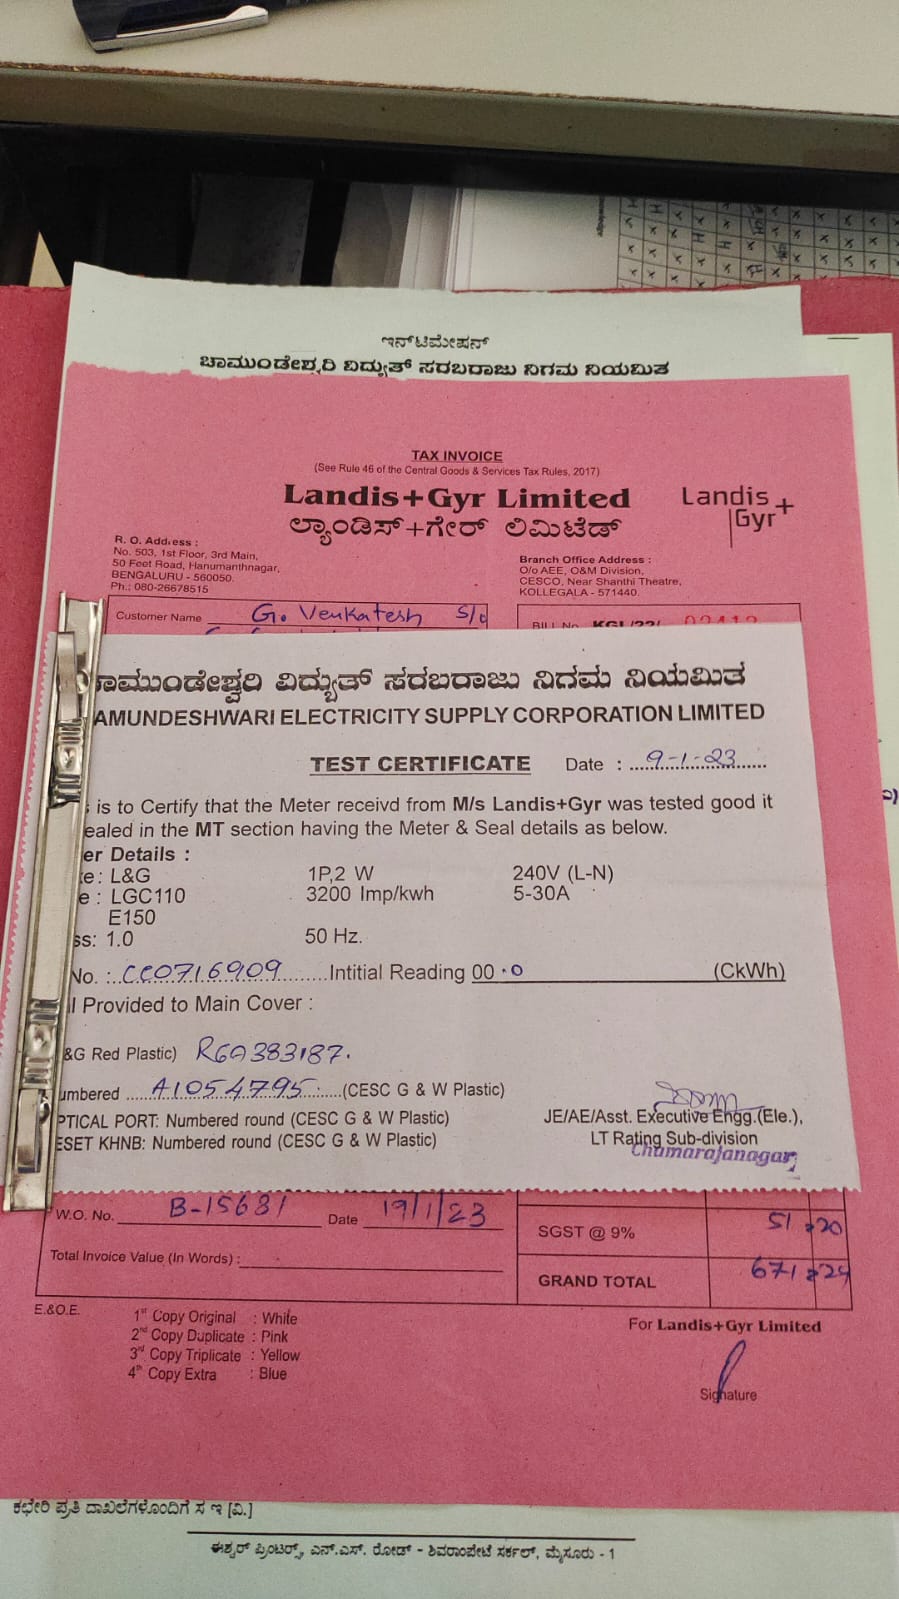 ಇನ್‌ಟಿಮೇಷನ್
ಚಾಮುಂಡೇಶ್ವರಿ ವಿದ್ಯುತ್ ಸರಬರಾಜು ನಿಗಮ ನಿಯಮಿತ
TAX INVOICE
(See Rule 46 of the Central Goods & Services Tax Rules, 2017)
Landis+Gyr Limited
ಲ್ಯಾಂಡಿಸ್+ಗೇರ್ ಲಿಮಿಟೆಡ್
Landis+
Gyr
R. O. Address :
No. 503, 1st Floor, 3rd Main,
50 Feet Road, Hanumanthnagar,
BENGALURU - 560050.
Ph.: 080-26678515
Branch Office Address :
O/o AEE, O&M Division,
CESCO, Near Shanthi Theatre,
KOLLEGALA - 571440.
Customer Name G. Venkatesh S/o
BILL No. KGL/22/
ಚಾಮುಂಡೇಶ್ವರಿ ವಿದ್ಯುತ್ ಸರಬರಾಜು ನಿಗಮ ನಿಯಮಿತ
AMUNDESHWARI ELECTRICITY SUPPLY CORPORATION LIMITED
TEST CERTIFICATE Date : 9-1-23
is to Certify that the Meter receivd from M/s Landis+Gyr was tested good it
ealed in the MT section having the Meter & Seal details as below.
er Details :
e : L&G 1P,2 W 240V (L-N)
e : LGC110 3200 Imp/kwh 5-30A
E150
ss: 1.0 50 Hz.
No. : CC0716909 Intitial Reading 00.0 (CkWh)
l Provided to Main Cover :
&G Red Plastic) R6A383187.
umbered A1054795 (CESC G & W Plastic)
PTICAL PORT: Numbered round (CESC G & W Plastic)
ESET KHNB: Numbered round (CESC G & W Plastic)
JE/AE/Asst. Executive Engg.(Ele.),
LT Rating Sub-division
Chamarajanagar
W.O. No. B-15681 Date 19/1/23
SGST @ 9% 51 20
Total Invoice Value (In Words) :
GRAND TOTAL 671 24
E.&O.E.
1st Copy Original : White
2nd Copy Duplicate : Pink
3rd Copy Triplicate : Yellow
4th Copy Extra : Blue
For Landis+Gyr Limited
Signature
ಕಛೇರಿ ಪ್ರತಿ ದಾಖಲೆಗಳೊಂದಿಗೆ ಸ ಇ [ವಿ.]
ಈಶ್ವರ್ ಪ್ರಿಂಟರ್ಸ್, ಎನ್.ಎಸ್. ರೋಡ್ - ಶಿವರಾಂಪೇಟೆ ಸರ್ಕಲ್, ಮೈಸೂರು - 1